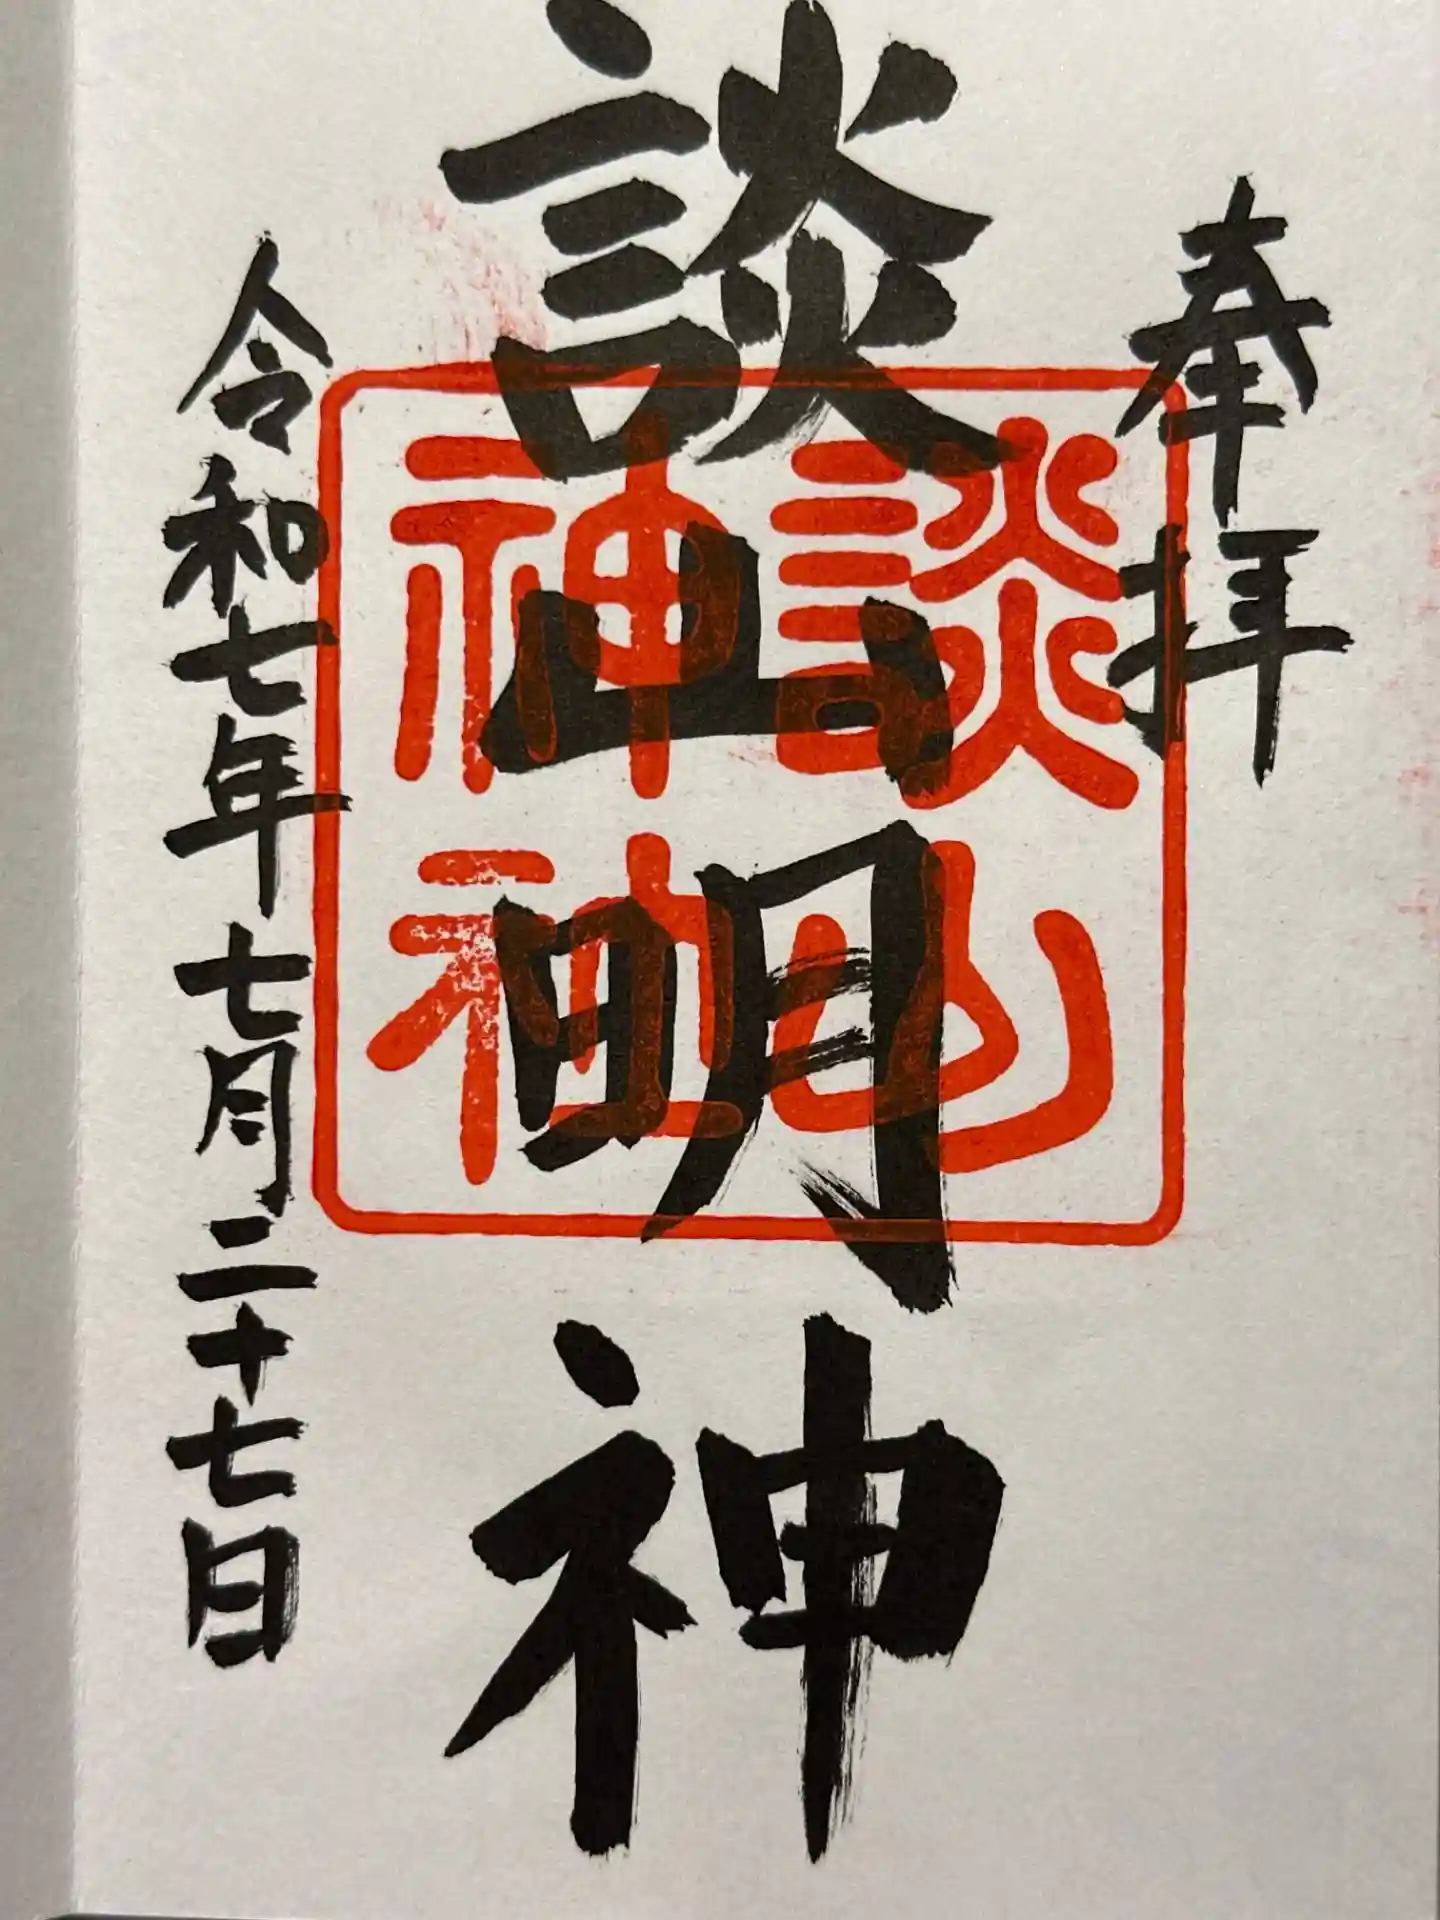 奉拝
談山明神
談山
神社
令和七年七月二十七日